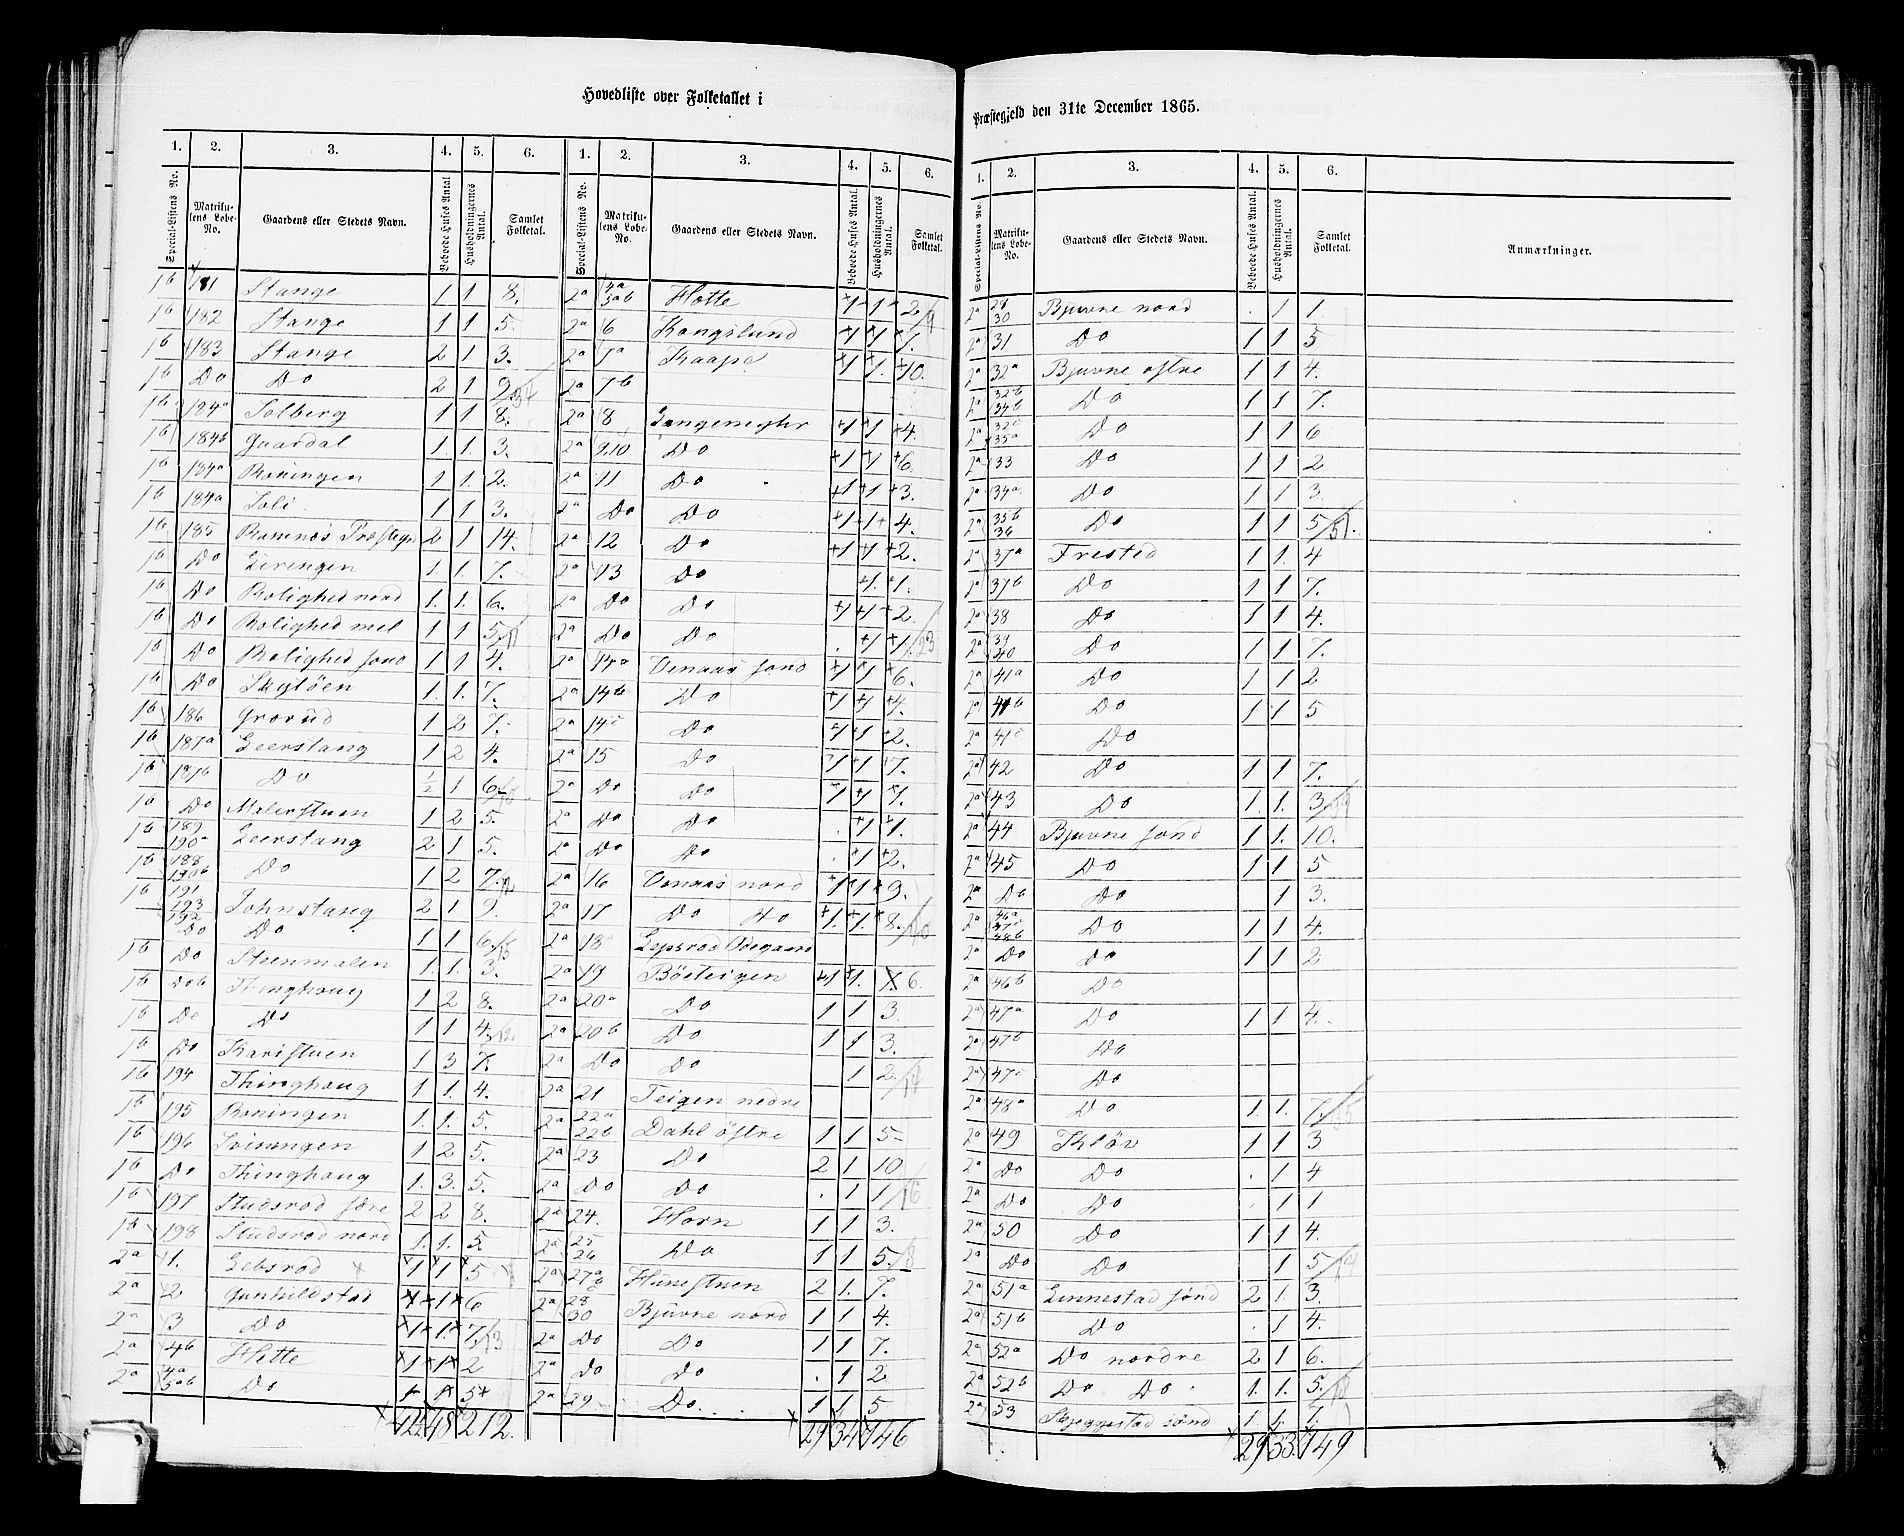 Hovedliste over Folketallet i Præstegjeld den 31te December 1865.
1. 2. 3. 4. 5. 6.
Special-Listens No. Matrikulens Løbe-No. Gaardens eller Stedets Navn. Beboede Huses Antal Husholdningernes Antal. Samlet Folketal.
1b 181 Stange 1 1 8.
1b 182 Stange 1 1 5.
1b 183 Stange 2 1 3.
1b Do Do 2 1 9
1b 184a Solberg 1 1 8.
1b 184b Gaardal 1. 1. 3.
1b 184a Roningen 1 1. 2.
1b 184a Soli 1 1 3.
1b 185 Ramnæs 2 1 14.
1b Do Lerengen 1. 1. 7.
1b Do Rolighed nord 1. 1. 6.
1b Do Rolighed mel 1 1 5.
1b Do Rolighed sønd 1 1 4.
1b Do 1. 1. 7.
1b 186 Grorud 1 2 7.
1b 187a Leerstang 1 2 4.
1b 187b Do ½ 1 6.
1b Do Malerstuen 1 2 5.
1b 189 190a Leerstang 2 1 5.
1b 188 190b Do 1 2 7.
1b 191 193 Johnstang 2 1 9.
192 Do Do 1 1 6.
1b Do Steenmalen 1. 1. 3.
1b Do Thinghoug 1 2 8.
1b Do Do 1 1 4.
1b Do Karistuen 1 3 7.
1b 194 Thinghoug 1 1. 4.
1b 195 Roningen 1. 1. 5.
1b 196 Svinungen 1 2 5.
1b Do Thinghoug 1. 3. 5.
1b 197 Studsrød søre 2 2 8.
1b 198 Studsrød nord 1. 1. 5.
2a 1. Lebsrød 1 1 5
2a 2 Gunhildstad 1 1 6
2a 3 Do 1 1. 7.
2a 4b Hotte 1 1 2
2a 4a 5ab Do 1 1 5
42 48 212.
1. 2. 3. 4. 5. 6.
Special-Listens No. Matrikulens Løbe-No. Gaardens eller Stedets Navn. Beboede Huses Antal. Husholdningernes Antal. Samlet Folketal.
2a 4a 5ab Hotte 1 1 2
2a 6 Kongslund 1 1 7.
2a 7a Kaape 1 1. 10.
2a 7b
2a 8 1 1 4.
2a 9.10 Do 1 1 6.
2a 11 Do 1 1 3.
2a Do Do 1 1 4.
2a 12 Do 1 1 2.
2a 13 Do 1. 1.
2a Do Do 1 1 2.
2a Do Do . 1 1.
2a 14a Venaas sønd 1 1 6.
2a 14b Do 1 1 4.
2a 14c Do 1 1 2.
2a 15 Do 1 1 7.
2a Do Do 1 1 1.
2a Do Do . 1 1.
2a Do Do . 1 2.
2a 16 Venaas nord 1 1 9.
2a 17 Do Do 1. 1. 8.
2a 18 Ødegaard
2a 19 Bösteigen 1 1. 6.
2a 20a Do 1 1 3.
2a 20b Do 1 1 3.
2a Do Do 1 2
2a 21 Teigen nedre
2a 22a 22b Dahl östre 1 1 5
2a 23 Do 2 1. 10
2a Do Do . 1 1
2a 24. Horn 1 1 3.
2a 25 26 Do 1 1 5.
2a 27a b 2 1. 7.
2a 28 30 Bjuvne nord 1 1 4.
2a Do Do 1 1 7.
2a Do Do . 1 2
2a 29 Do. 1 1 5
29 34 146
1. 2. 3. 4. 5. 6.
Special-Listens No. Matrikulens Løbe-No. Gaardens eller Stedets Navn. Beboede Huses Antal. Husholdningernes Antal. Samlet Folketal. Anmærkninger.
2a 28 30 Bjuvne nord . 1 1.
2a 31 Do 1 1 5
2a 32a Bjuvne østre 1 1 4.
2a 32b 34b Do 1 1 7.
2a 32c 35a Do 1 1 6
2a 33 Do 1 1 2
2a 34a Do 1 1 3.
2a 35b 36 Do 1 1 5
2a 37a Frested 1 1. 4
2a 37b Do 1 1 7.
2a 38 Do 1 1 4.
2a 39 40 Do 1 1 7.
2a 41a Do 1 1 2
2a 41b Do 1 1 5
2a 41c Do
2a 42 Do 1 1 7.
2a 43 Do 1. 1. 3.
2a 44 Bjuvne sønd 1 1. 10.
2a 45 Do 1 1 5
2a Do Do 1 3.
2a 46a 47c 48b Do 1 1 4.
2a Do Do 1 1 2
2a 46b Do
2a 47a Do 1 1 4.
2a 47b Do
2a 47c Do
2a 48a Do 1. 1. 7.
2a 49 Kløv 1 1 3
2a Do Do . 1 4
2a Do Do . 1 1
2a 50 Do 1 1 4.
2a Do Do 1 5
2a 51a Linnestad sønd 2 1. 3.
2a 51b Do . 1 4.
2a 52a Do nordre 2 1 6.
2a 52b Do Do 1. 1. 5.
2a 53 Skjeggestad sønd 1 1. 7.
29 33. 149